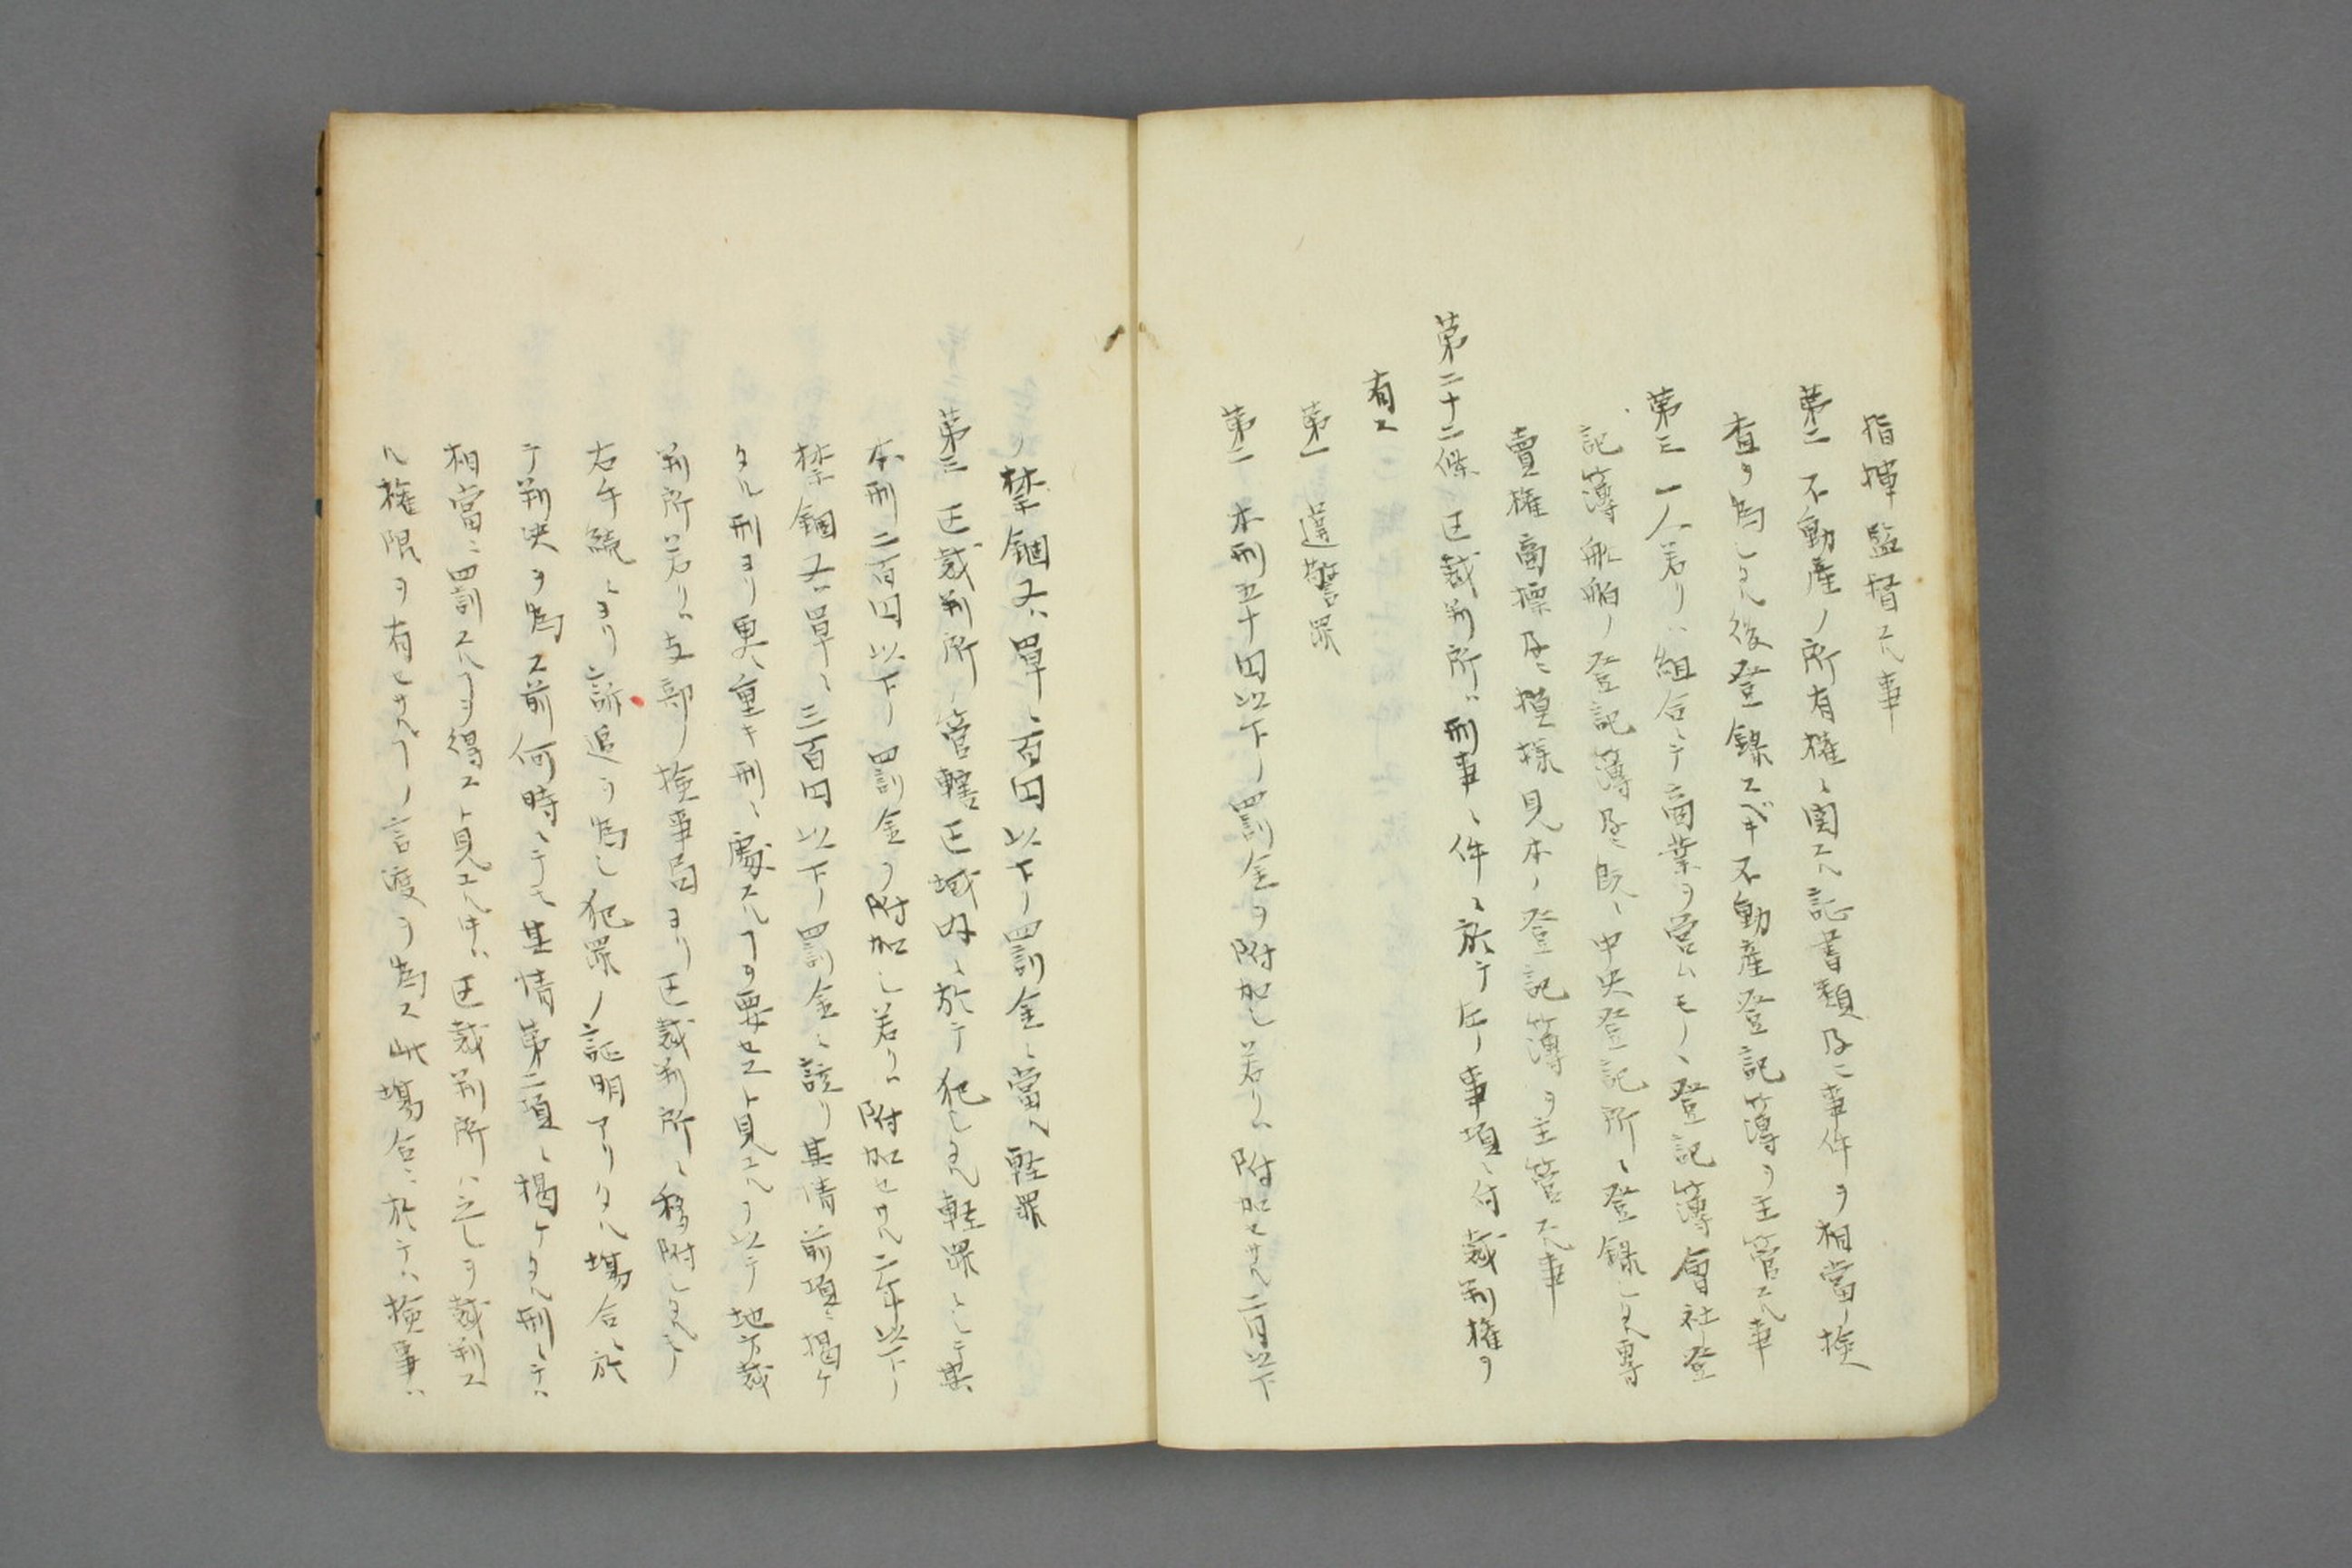 指揮監督スル事
第二 不動産ノ所有權ニ関スル証書類及ニ事件ヲ相當ノ検
査ヲ為シタル後登録スベキ不動産登記簿ヲ主管スル事
第三 一人若クハ組合ニテ商業ヲ営ムモノヽ登記簿會社登
記簿船舶ノ登記簿及ヒ既ニ中央登記所ニ登録シタル専
賣權商標及ヒ摸様見本ノ登記簿ヲ主管スル事
第二十二條 区裁判所ハ刑事ニ件ニ於テ左ノ事項ニ付裁判權ヲ
有ス
第一 違警罪
第二 本刑五十円以下ノ罰金ヲ附加シ若クハ附加セサル二月以下
ノ禁錮又ハ單ニ百円以下ノ罰金ニ當ル軽罪
第三 区裁判所ノ管轄区域内ニ於テ犯シタル軽罪ニシテ其
本刑二百円以下ノ罰金ヲ附加シ若クハ附加セサル二年以下ノ
禁錮又ハ單ニ三百円以下ノ罰金ニ該リ其情前項ニ掲ケ
タル刑ヨリ更ニ重キ刑ニ處スルヿヲ要セスト見ユルヲ以テ地方裁
判所若クハ支部ノ検事局ヨリ区裁判所ニ移附シタルモノ
右手続ニヨリ訴追ヲ為シ犯罪ノ証明アリタル場合ニ於
テ判決ヲ為ス前何時ニテモ其情第二項ニ掲ケタル刑ニテハ
相當ニ罰スルヿヲ得スト見ユル時ハ区裁判所ハ之レヲ裁判ス
ル權限ヲ有セサルヿノ言渡ヲ為ス此場合ニ於テハ検事ハ